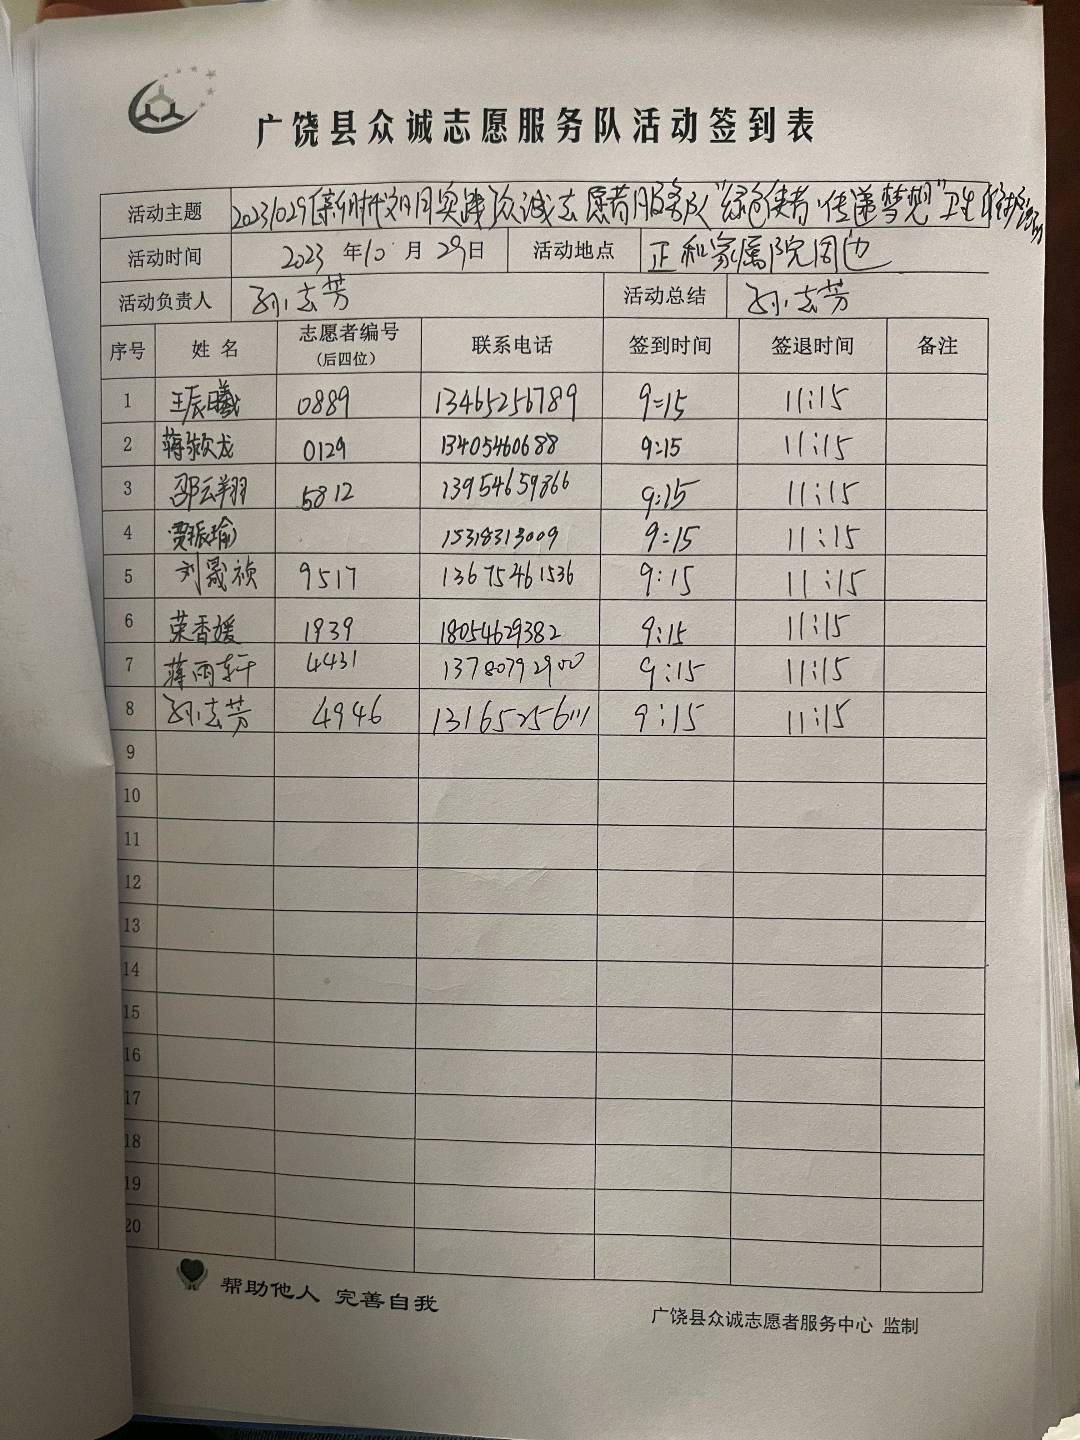 广饶县众诚志愿服务队活动签到表
活动主题 20231029新时代文明实践众诚志愿者服务队“绿色使者 传递梦想”卫生
活动时间 2023 年 10 月 29 日 活动地点 正和家属院周边
活动负责人 孙志芳 活动总结 孙志芳
序号 姓 名 志愿者编号（后四位） 联系电话 签到时间 签退时间 备注
1 王辰曦 0889 13465256789 9:15 11:15
2 蒋歘龙 0129 13405460688 9:15 11:15
3 邵云翔 5812 13954659866 9:15 11:15
4 贾振瑜 15318313009 9:15 11:15
5 刘晟祯 9517 13675461536 9:15 11:15
6 荣香媛 1939 18054629382 9:15 11:15
7 蒋雨轩 4431 13780792900 9:15 11:15
8 孙志芳 4946 13165256111 9:15 11:15
9
10
11
12
13
14
15
16
17
18
19
20
帮助他人 完善自我
广饶县众诚志愿者服务中心 监制